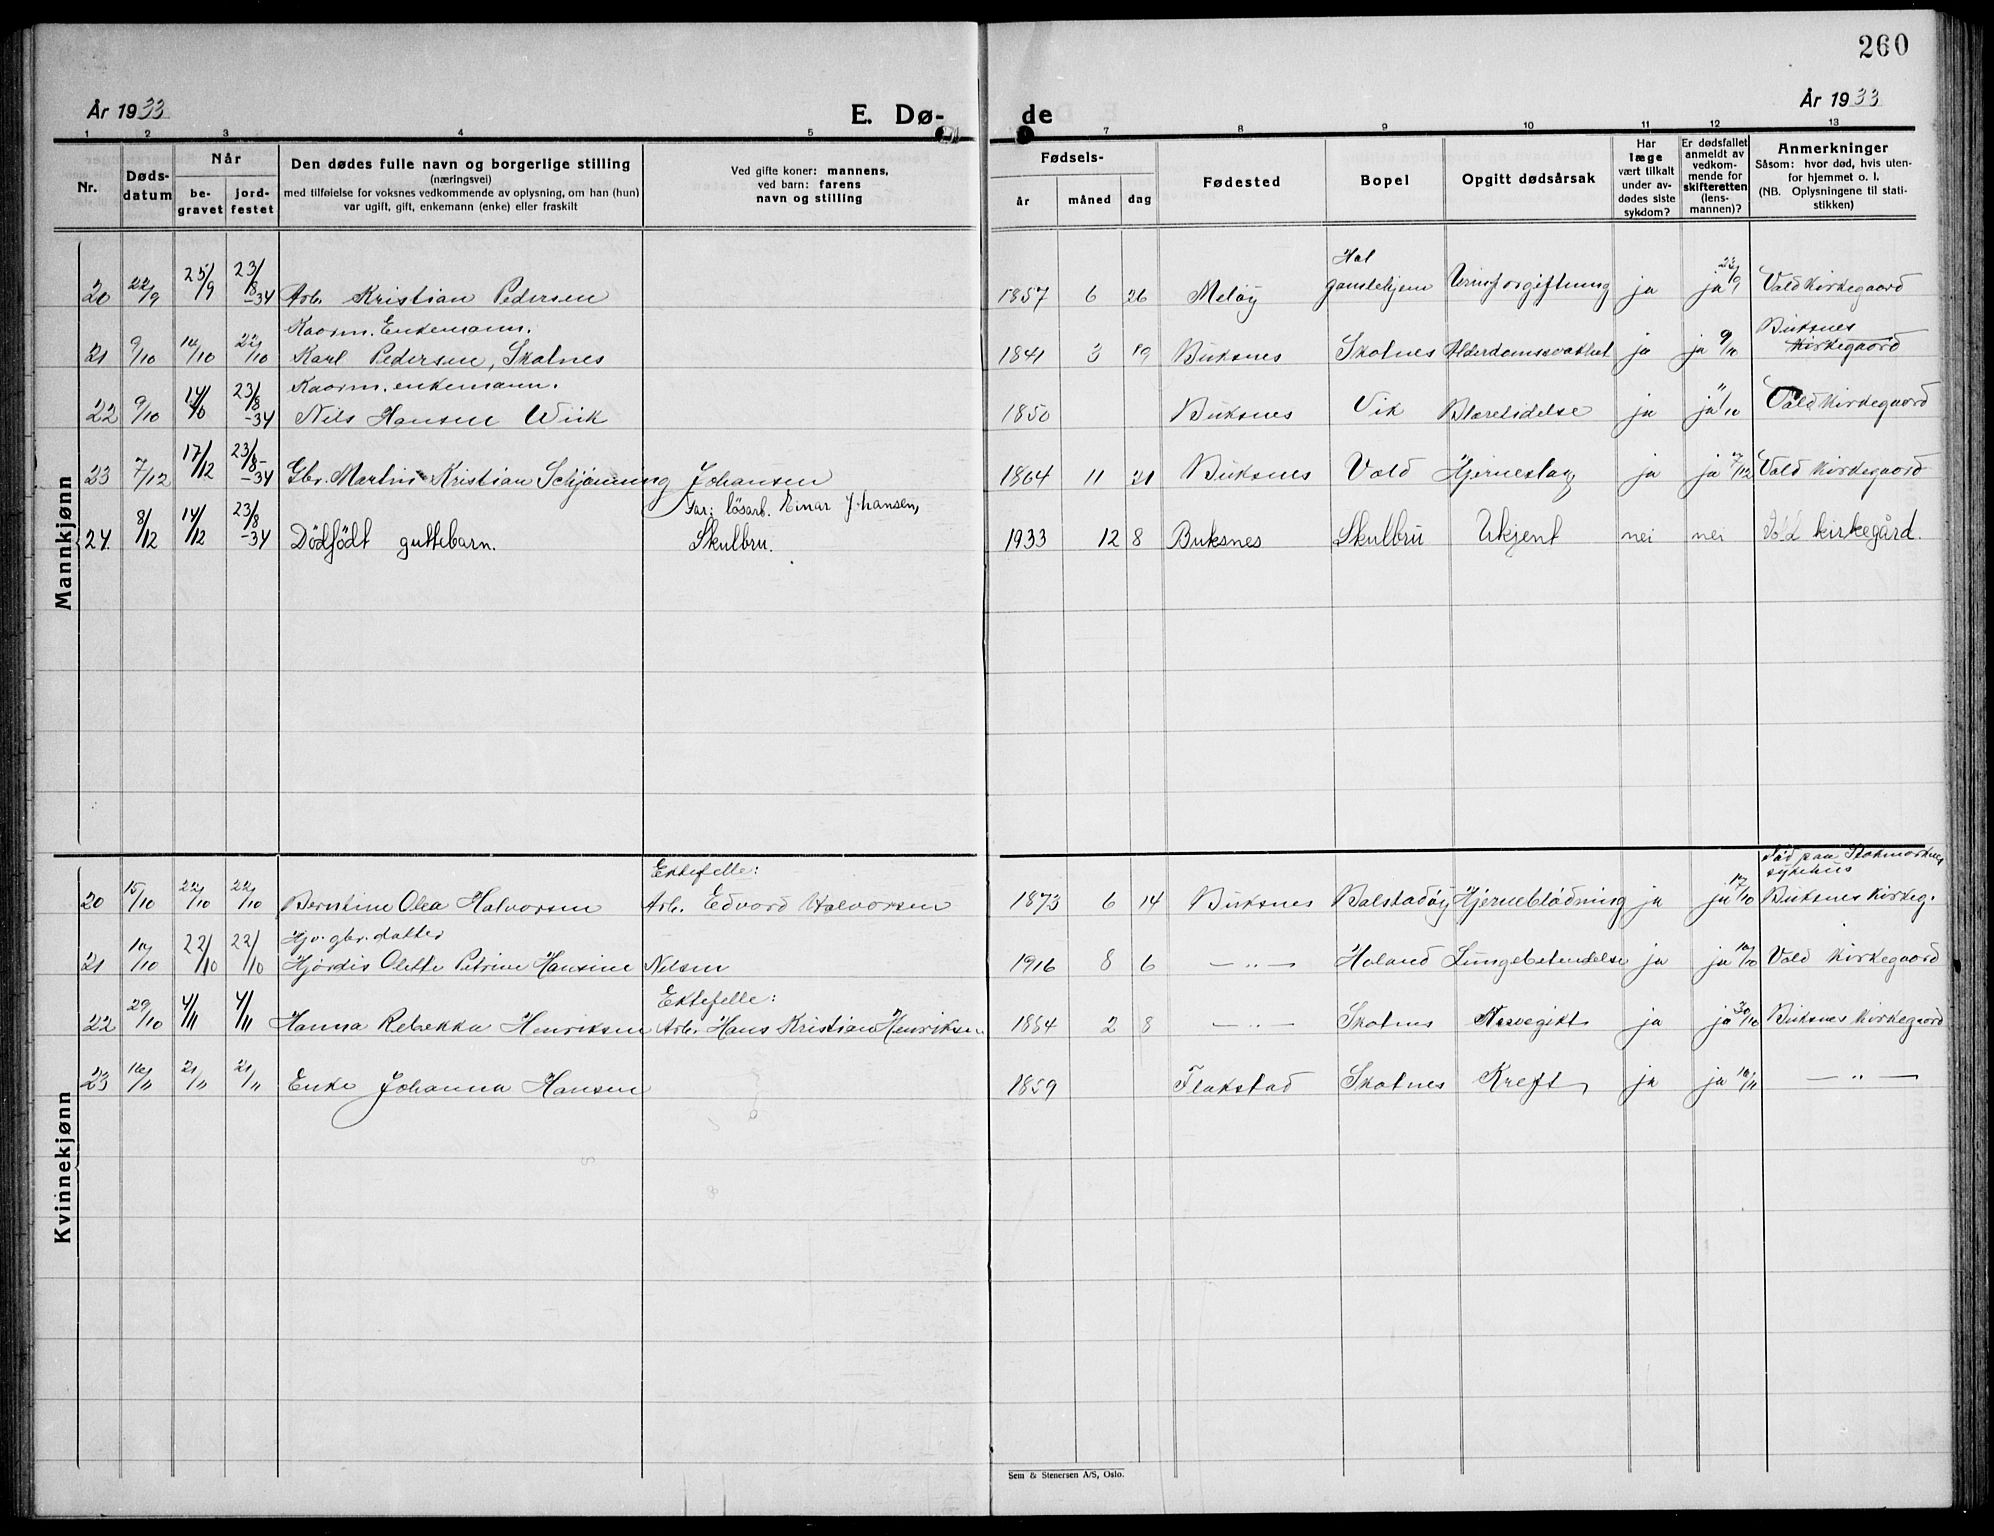 260
År 1933
E. Dø-
de
År 1933
1 2 3 4 5 7 8 9 10 11 12 13
Nr.
Døds-
datum
Når
be-
gravet
jord-
festet
Den dødes fulle navn og borgerlige stilling
(næringsvei)
med tilføielse for voksnes vedkommende av oplysning, om han (hun)
var ugift, gift, enkemann (enke) eller fraskilt
Ved gifte koner: mannens,
ved barn: farens
navn og stilling
Fødsels-
år måned dag
Fødested
Bopel
Opgitt dødsårsak
Har
læge
vært tilkalt
under av-
dødes siste
sykdom?
Er dødsfallet
anmeldt av
vedkom-
mende for
skifteretten
(lens-
mannen)?
Anmerkninger
Såsom: hvor død, hvis uten-
for hjemmet o. l.
(NB. Oplysningene til stati-
stikken)
Mannkjønn
20 22/9 25/9 23/8 -34 Arb. Kristian Pedersen 1857 6 26 Meløy Hol gamlehjem Urinforgiftning ja ja 23/9 Vold kirkegaard
Kaarm. Enkemann.
21 9/10 14/10 22/10 Karl Pedersen, Skotnes 1841 3 19 Buksnes Skotnes Alderdomssvakhet ja ja 9/10 Buksnes kirkegaard
Kaarm. enkemann.
22 9/10 14/10 23/8 -34 Nils Hansen Wik 1850 Buksnes Vik Blærelidelse ja ja 11/10 Vold kirkegaard
23 7/12 17/12 23/8 -34 Gbr. Martin Kristian Schjönning Johansen 1864 11 21 Buksnes Vold Hjerneslag ja ja 7/12 Vold kirkegaard
Far: løsarb. Einar Johansen,
24. 8/12 14/12 23/8 -34 Dödfödt guttebarn. Skulbru. 1933 12 8 Buksnes Skulbru Ukjent nei nei Vold kirkegård.
Kvinnekjønn
Ektefelle: Död paa Stokmarknes sykehus
20 15/10 22/10 22/10 Berntine Olea Halvorsen Arb. Edvard Halvorsen 1873 6 14 Buksnes Balstadöy Hjerneblödning ja ja 17/10 Buksnes kirkeg.
Hjv. gbr. datter
21 10/10 22/10 22/10 Hjørdis Olette Petrine Hansine Nilsen 1916 8 6 —„— Holand Lungebetendelse ja ja 10/10 Vold kirkegaard
Ektefelle:
22 29/10 4/11 4/11 Hanna Rebekka Henriksen Arb. Hans Kristian Henriksen 1864 2 8 —„— Skotnes Nervegikt ja ja 30/10 Buksnes kirkegaard
23 16/11 21/11 21/11 Enke Johanna Hansen 1859 Flakstad Skotnes Kreft ja ja 16/11 —„—
Sem & Stenersen A/S, Oslo.